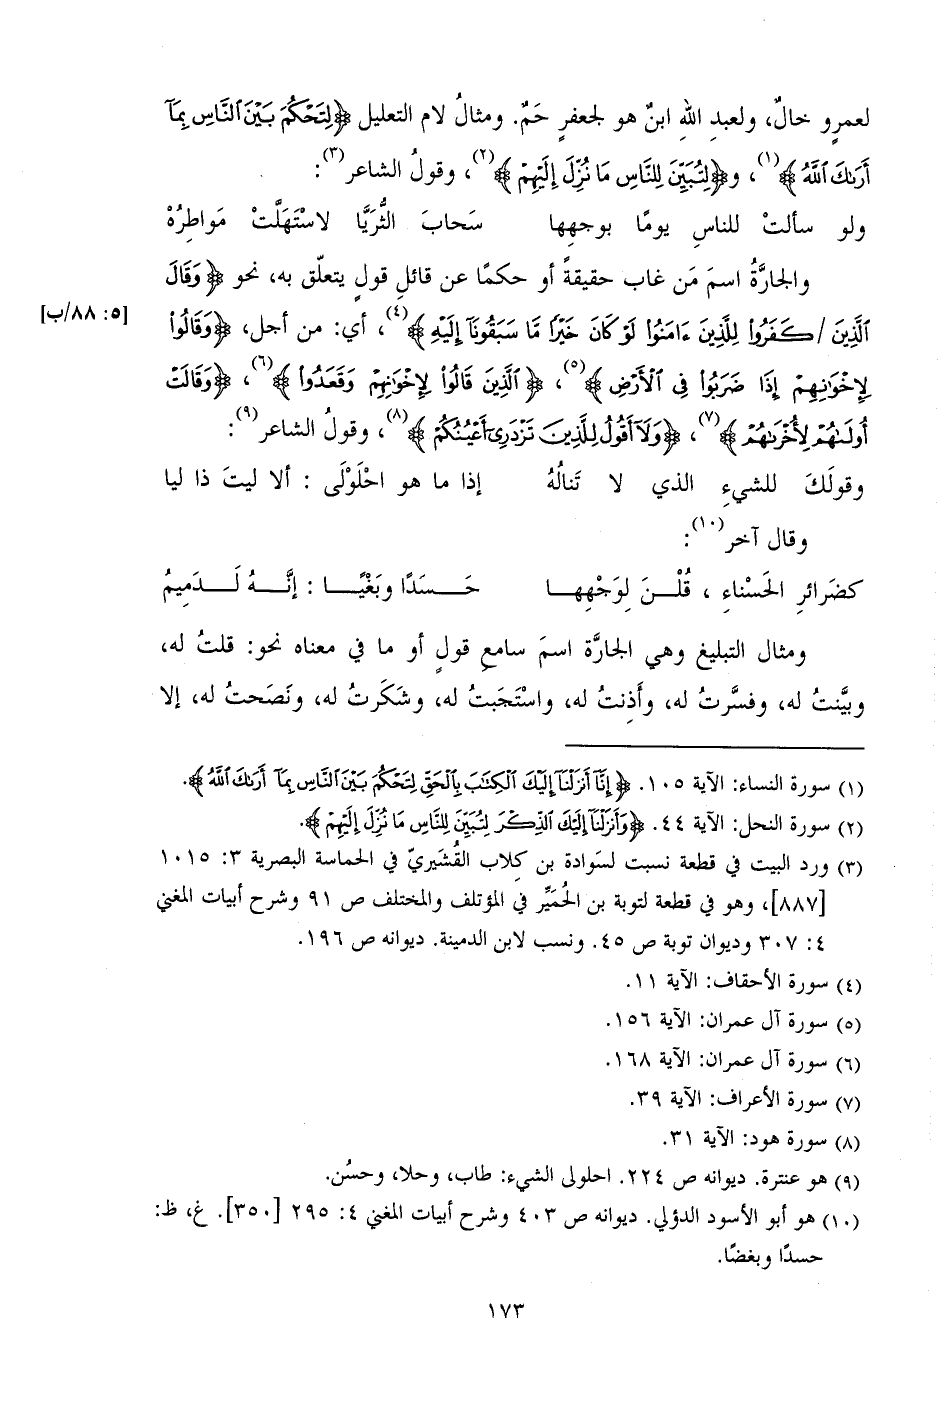 لعمرٍو خالٌ، ولعبدِ اللهِ ابنٌ هو لجعفرٍ حَمٌ. ومثالُ لام التعليل ﴿لِتَحْكُمَ بَيْنَ ٱلنَّاسِ بِمَآ
أَرَىٰكَ ٱللَّهُ﴾(١)، و﴿لِتُبَيِّنَ لِلنَّاسِ مَا نُزِّلَ إِلَيْهِمْ﴾(٢)، وقولُ الشاعر(٣):
ولو سألتْ للناسِ يومًا بوجهِها سَحابَ الثُّرَيَّا لاسْتَهَلَّتْ مَواطِرُهْ
والجارَّةُ اسمَ مَن غاب حقيقةً أو حكمًا عن قائلِ قولٍ يتعلّق به، نحو ﴿وَقَالَ
[٥: ٨٨/ب] ٱلَّذِينَ / كَفَرُوا۟ لِلَّذِينَ ءَامَنُوا۟ لَوْ كَانَ خَيْرًا مَّا سَبَقُونَآ إِلَيْهِ﴾(٤)، أي: من أجل، ﴿وَقَالُوا۟
لِإِخْوَٰنِهِمْ إِذَا ضَرَبُوا۟ فِى ٱلْأَرْضِ﴾(٥)، ﴿ٱلَّذِينَ قَالُوا۟ لِإِخْوَٰنِهِمْ وَقَعَدُوا۟﴾(٦)، ﴿وَقَالَتْ
أُولَىٰهُمْ لِأُخْرَىٰهُمْ﴾(٧)، ﴿وَلَآ أَقُولُ لِلَّذِينَ تَزْدَرِىٓ أَعْيُنُكُمْ﴾(٨)، وقولُ الشاعر(٩):
وقولَكَ للشيءِ الذي لا تَنالُهُ إذا ما هو احْلَوْلَى : ألا ليتَ ذا ليا
وقال آخر(١٠):
كضَرائرِ الحَسْناءِ ، قُلْنَ لِوَجْهِها حَسَدًا وبَغْيًا : إنَّهُ لَدَمِيمُ
ومثال التبليغ وهي الجارَّة اسمَ سامعِ قولٍ أو ما في معناه نحو: قلتُ له،
وبيَّنتُ له، وفسَّرتُ له، وأَذِنتُ له، واسْتَجَبتُ له، وشَكَرتُ له، ونَصَحتُ له، إلا
(١) سورة النساء: الآية ١٠٥. ﴿إِنَّآ أَنزَلْنَآ إِلَيْكَ ٱلْكِتَٰبَ بِٱلْحَقِّ لِتَحْكُمَ بَيْنَ ٱلنَّاسِ بِمَآ أَرَىٰكَ ٱللَّهُ﴾.
(٢) سورة النحل: الآية ٤٤. ﴿وَأَنزَلْنَآ إِلَيْكَ ٱلذِّكْرَ لِتُبَيِّنَ لِلنَّاسِ مَا نُزِّلَ إِلَيْهِمْ﴾.
(٣) ورد البيت في قطعة نسبت لسَوادة بن كِلاب القُشَيريّ في الحماسة البصرية ٣: ١٠١٥
[٨٨٧]، وهو في قطعة لتوبة بن الحُمَيِّر في المؤتلف والمختلف ص ٩١ وشرح أبيات المغني
٤: ٣٠٧ وديوان توبة ص ٤٥. ونسب لابن الدمينة. ديوانه ص ١٩٦.
(٤) سورة الأحقاف: الآية ١١.
(٥) سورة آل عمران: الآية ١٥٦.
(٦) سورة آل عمران: الآية ١٦٨.
(٧) سورة الأعراف: الآية ٣٩.
(٨) سورة هود: الآية ٣١.
(٩) هو عنترة. ديوانه ص ٢٢٤. احلولى الشيء: طاب، وحلا، وحسُن.
(١٠) هو أبو الأسود الدؤلي. ديوانه ص ٤٠٣ وشرح أبيات المغني ٤: ٢٩٥ [٣٥٠]. غ، ظ:
حسدًا وبغضًا.
١٧٣